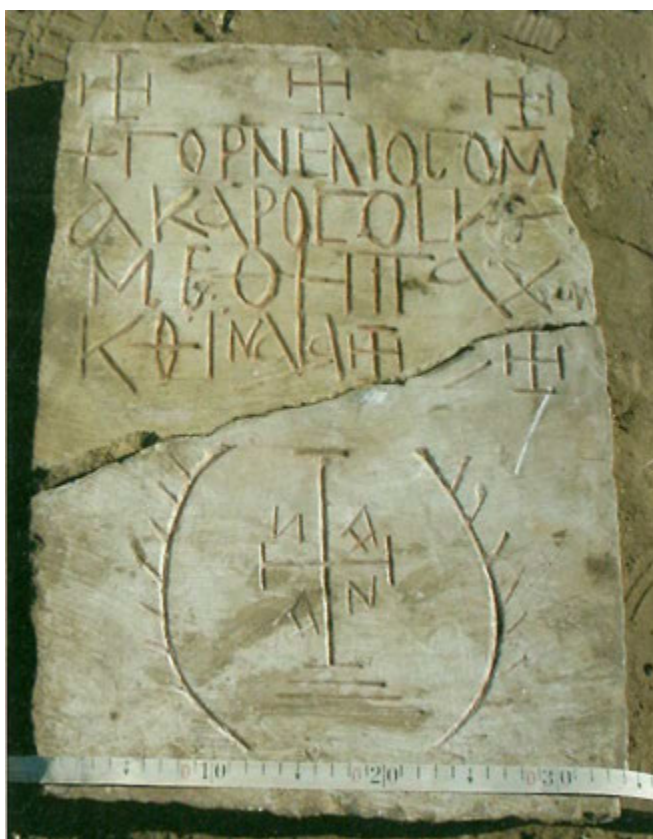 ☩ ☩ ☩
+ΓΟΡΝΕΛΙΟϹΟΜ
ΑΚΑΡΟϹ
ΜΕΘΗΠΑΧΩΝ
ΚΘΙΝΔΙΑ☩ ☩
И Α
Α Ν
10 20 30